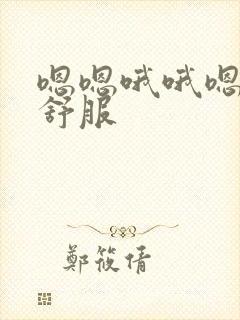 嗯嗯哦哦嗯
舒服
鄭筱倩